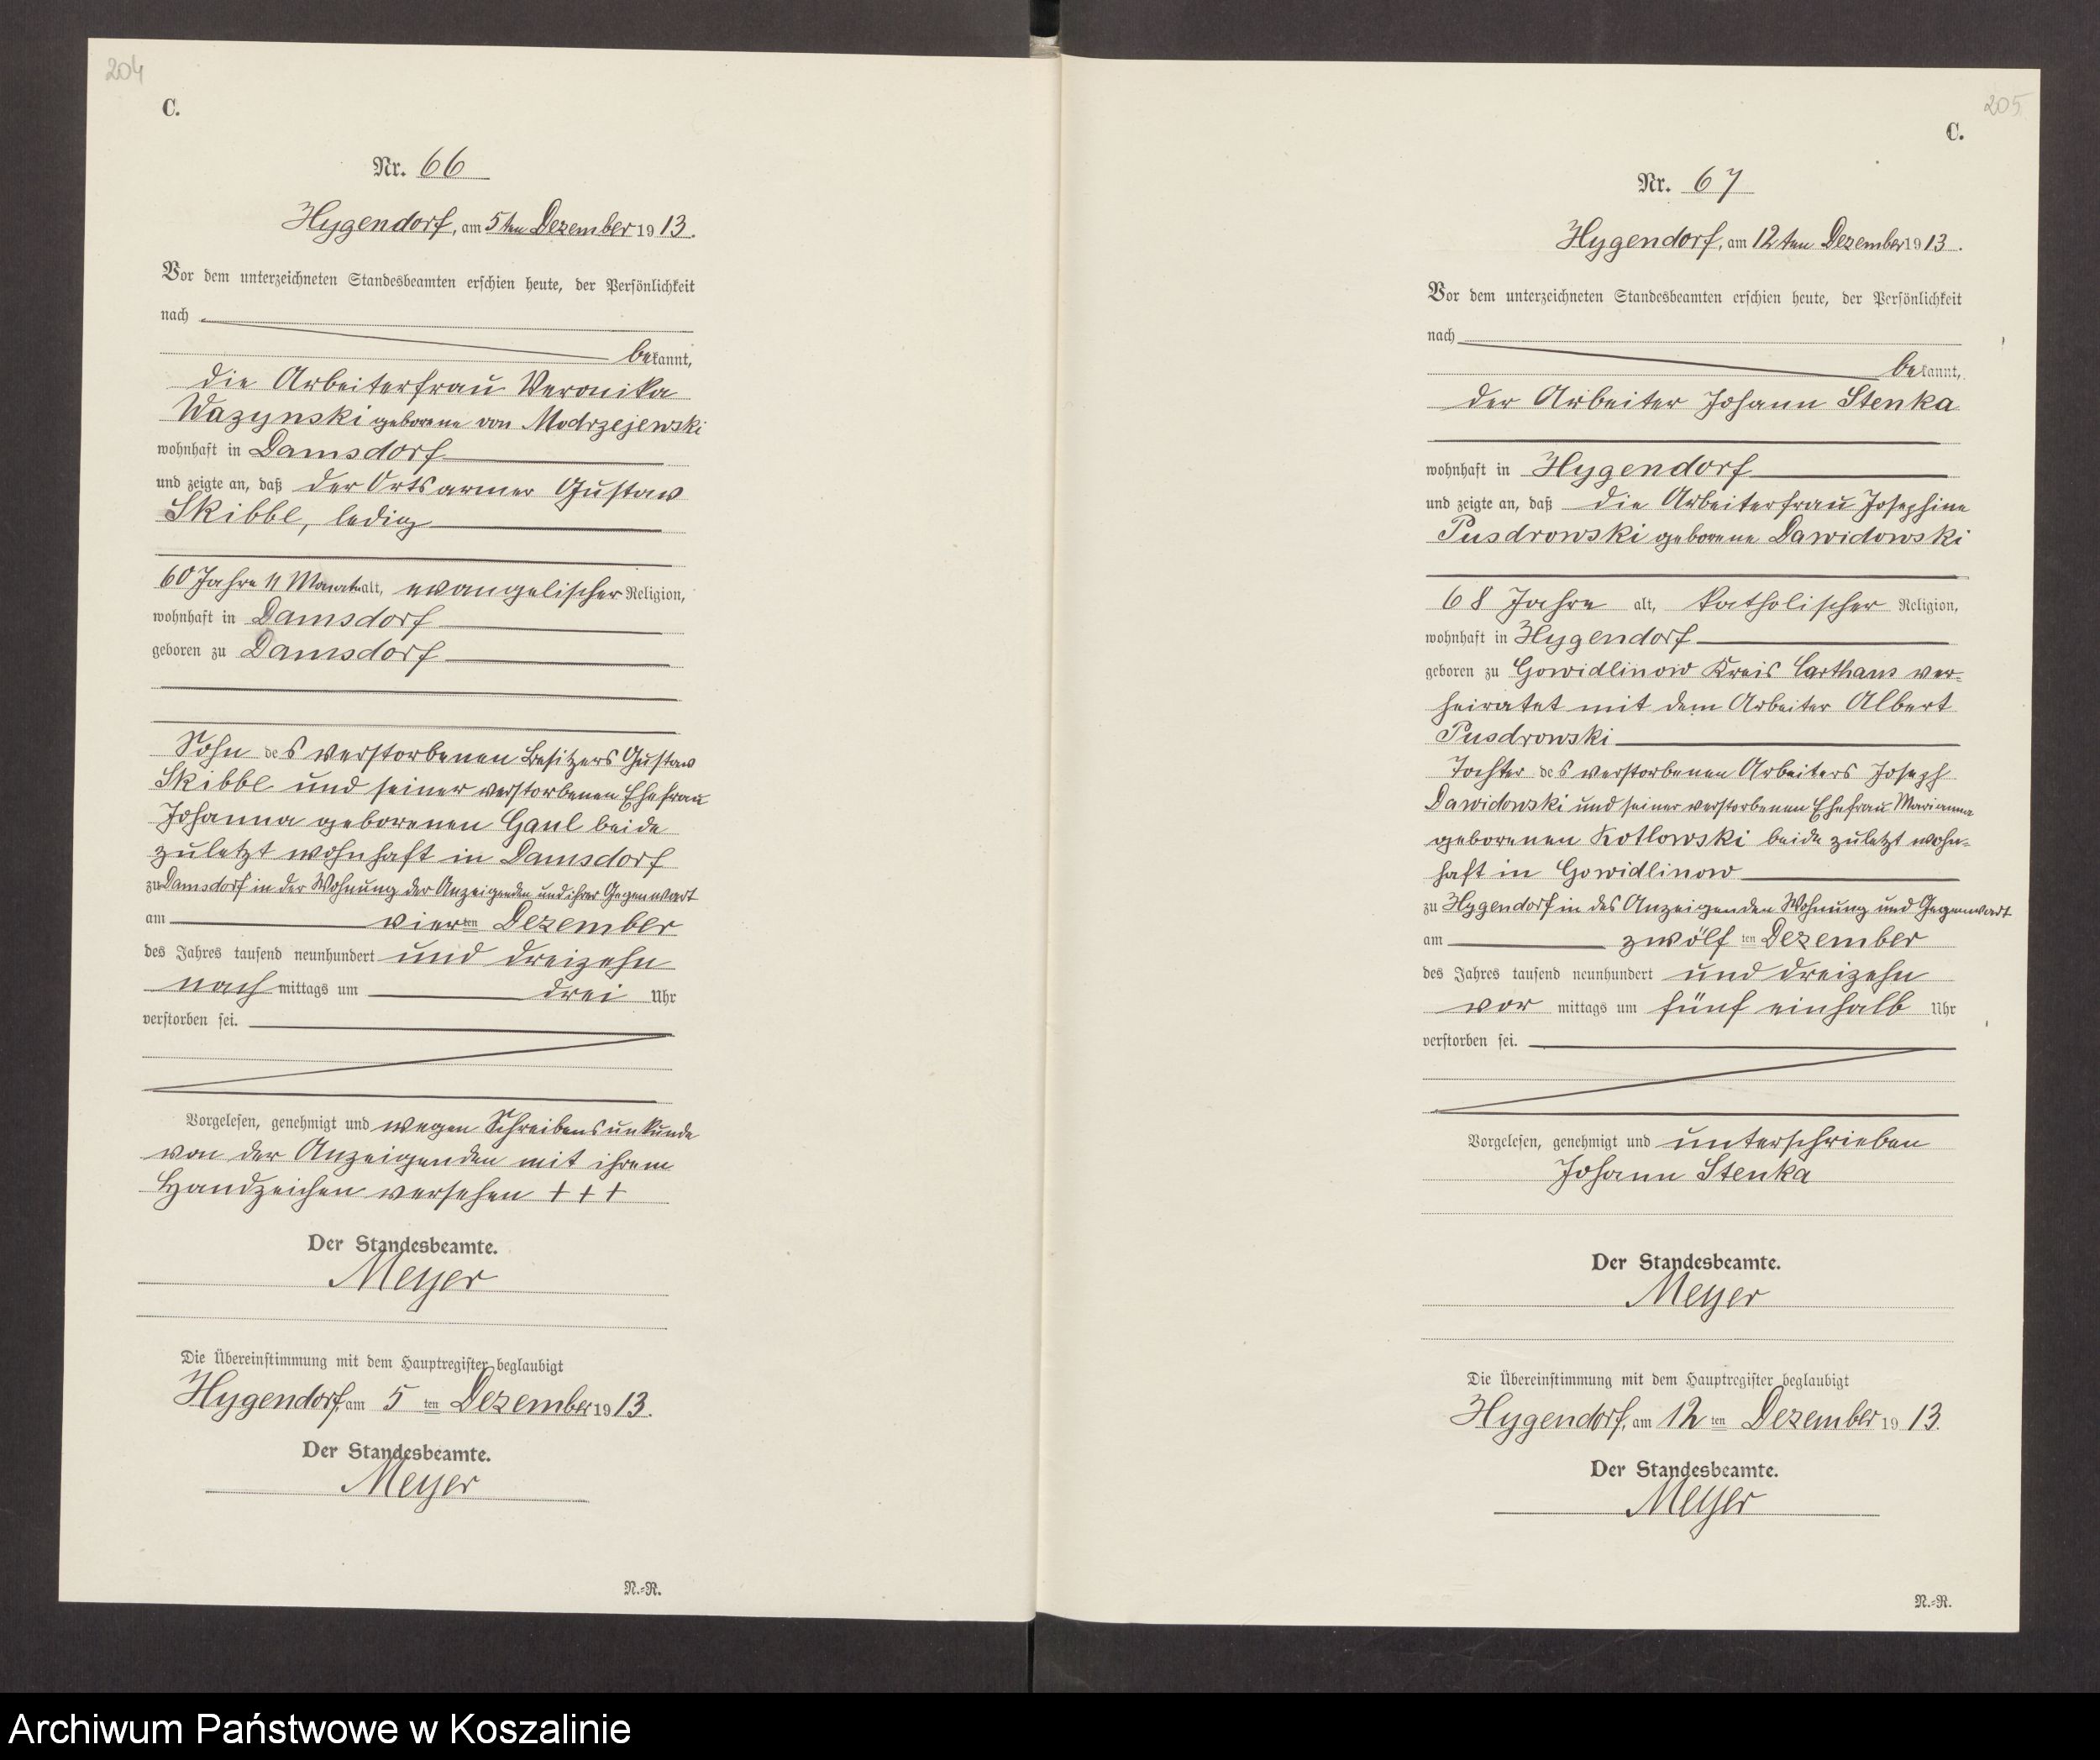 204
C.
Nr. 66
Hygendorf, am 5ten Dezember 1913.
Vor dem unterzeichneten Standesbeamten erschien heute, der Persönlichkeit
nach
bekannt,
die Arbeiterfrau Veronika
Wazynski geborene von Modrzejewski
wohnhaft in Damsdorf
und zeigte an, daß der Ortsarmer Gustav
Skibbe, ledig
60 Jahre 11 Monate alt, evangelischer Religion,
wohnhaft in Damsdorf
geboren zu Damsdorf
Sohn des verstorbenen Besitzers Gustav
Skibbe und seiner verstorbenen Ehefrau
Johanna geborenen Gaul beide
zuletzt wohnhaft in Damsdorf
zu Damsdorf in der Wohnung der Anzeigenden und ihrer Gegenwart
am vierten Dezember
des Jahres tausend neunhundert und dreizehn
nachmittags um drei Uhr
verstorben sei.
Vorgelesen, genehmigt und wegen Schreibensunkunde
von der Anzeigenden mit ihrem
Handzeichen versehen + + +
Der Standesbeamte.
Meyer
Die Übereinstimmung mit dem Hauptregister beglaubigt
Hygendorf, am 5ten Dezember 1913.
Der Standesbeamte.
Meyer
N.=R.
205
C.
Nr. 67
Hygendorf, am 12ten Dezember 1913.
Vor dem unterzeichneten Standesbeamten erschien heute, der Persönlichkeit
nach
bekannt,
der Arbeiter Johann Stenka
wohnhaft in Hygendorf
und zeigte an, daß die Arbeiterfrau Josephine
Pusdrowski geborene Dawidowski
68 Jahre alt, katholischer Religion,
wohnhaft in Hygendorf
geboren zu Gowidlinow Kreis Carthaus ver=
heiratet mit dem Arbeiter Albert
Pusdrowski
Tochter des verstorbenen Arbeiters Joseph
Dawidowski und seiner verstorbenen Ehefrau Marianna
geborenen Kotlowski beide zuletzt wohn=
haft in Gowidlinow
zu Hygendorf in des Anzeigenden Wohnung und Gegenwart
am zwölften Dezember
des Jahres tausend neunhundert und dreizehn
vormittags um fünf einhalb Uhr
verstorben sei.
Vorgelesen, genehmigt und unterschrieben
Johann Stenka
Der Standesbeamte.
Meyer
Die Übereinstimmung mit dem Hauptregister beglaubigt
Hygendorf, am 12ten Dezember 1913.
Der Standesbeamte.
Meyer
N.=R.
Archiwum Państwowe w Koszalinie